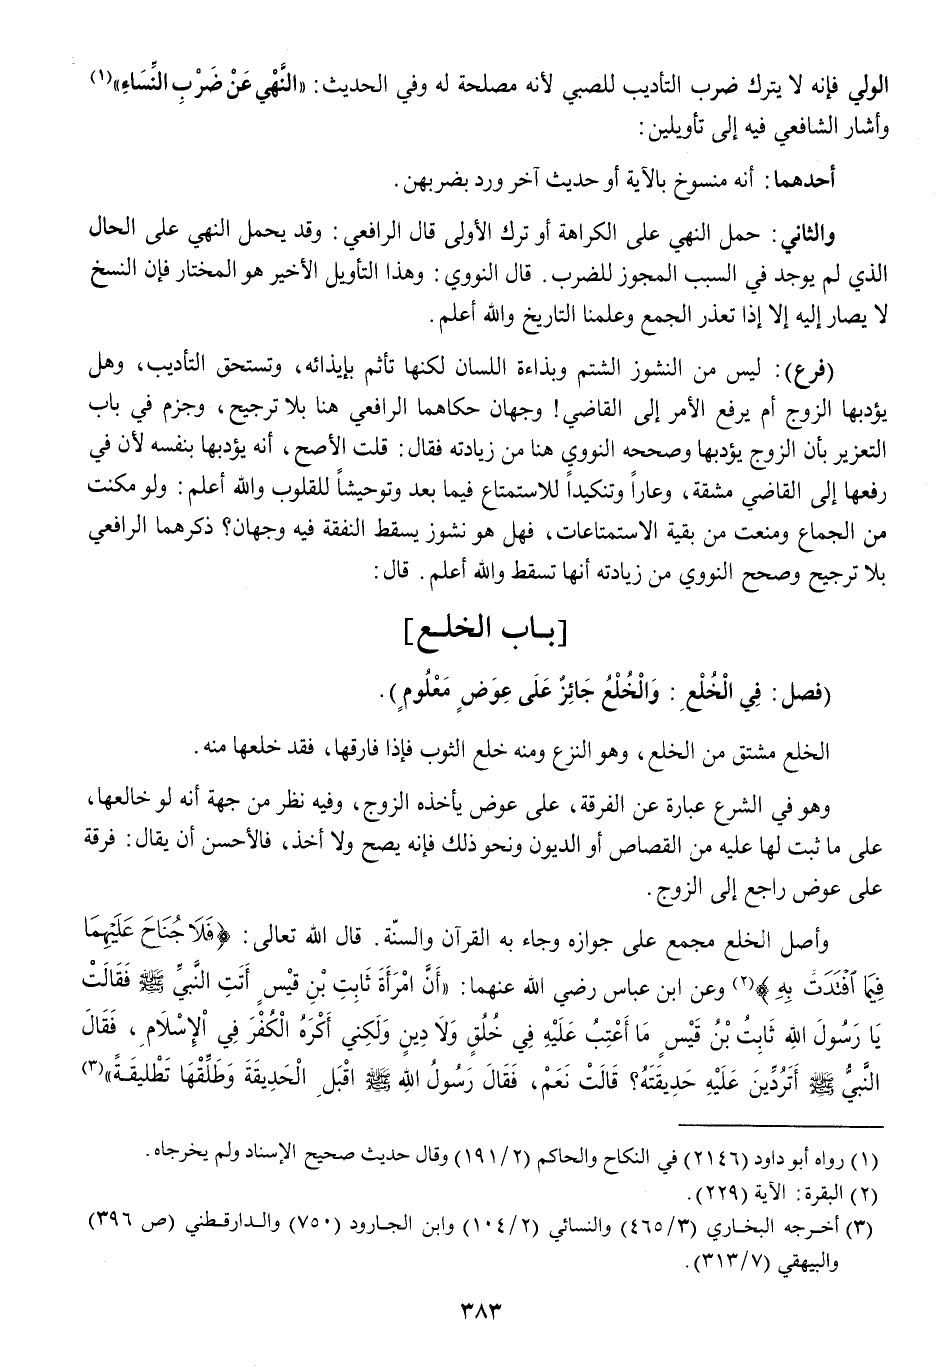 الولي فإنه لا يترك ضرب التأديب للصبي لأنه مصلحة له وفي الحديث: «النَّهْي عَنْ ضَرْبِ النِّسَاءِ»(١)
وأشار الشافعي فيه إلى تأويلين:
أحدهما: أنه منسوخ بالآية أو حديث آخر ورد بضربهن.
والثاني: حمل النهي على الكراهة أو ترك الأولى قال الرافعي: وقد يحمل النهي على الحال
الذي لم يوجد في السبب المجوز للضرب. قال النووي: وهذا التأويل الأخير هو المختار فإن النسخ
لا يصار إليه إلا إذا تعذر الجمع وعلمنا التاريخ والله أعلم.
(فرع): ليس من النشوز الشتم وبذاءة اللسان لكنها تأثم بإيذائه، وتستحق التأديب، وهل
يؤدبها الزوج أم يرفع الأمر إلى القاضي! وجهان حكاهما الرافعي هنا بلا ترجيح، وجزم في باب
التعزير بأن الزوج يؤدبها وصححه النووي هنا من زيادته فقال: قلت الأصح، أنه يؤدبها بنفسه لأن في
رفعها إلى القاضي مشقة، وعاراً وتنكيداً للاستمتاع فيما بعد وتوحيشاً للقلوب والله أعلم: ولو مكنت
من الجماع ومنعت من بقية الاستمتاعات، فهل هو نشوز يسقط النفقة فيه وجهان؟ ذكرهما الرافعي
بلا ترجيح وصحح النووي من زيادته أنها تسقط والله أعلم. قال:
[بـاب الخلـع]
(فصل: فِي الْخُلْعِ: وَالْخُلْعُ جَائِزٌ عَلَى عِوَضٍ مَعْلُومٍ).
الخلع مشتق من الخلع، وهو النزع ومنه خلع الثوب فإذا فارقها، فقد خلعها منه.
وهو في الشرع عبارة عن الفرقة، على عوض يأخذه الزوج، وفيه نظر من جهة أنه لو خالعها،
على ما ثبت لها عليه من القصاص أو الديون ونحو ذلك فإنه يصح ولا أخذ، فالأحسن أن يقال: فرقة
على عوض راجع إلى الزوج.
وأصل الخلع مجمع على جوازه وجاء به القرآن والسنّة. قال الله تعالى: ﴿فَلَا جُنَاحَ عَلَيْهِمَا
فِيمَا ٱفْتَدَتْ بِهِ﴾(٢) وعن ابن عباس رضي الله عنهما: «أَنَّ امْرَأَةَ ثَابِتِ بْنِ قَيْسٍ أَتَتِ النَّبِيَّ ﷺ فَقَالَتْ
يَا رَسُولَ اللهِ ثَابِتُ بْنُ قَيْسٍ مَا أَعْتِبُ عَلَيْهِ فِي خُلُقٍ وَلَا دِينٍ وَلَكِنِي أَكْرَهُ الْكُفْرَ فِي الْإِسْلَامِ، فَقَالَ
النَّبِيُّ ﷺ أَتَرُدِّينَ عَلَيْهِ حَدِيقَتَهُ؟ قَالَتْ نَعَمْ، فَقَالَ رَسُولُ اللهِ ﷺ اقْبَلِ الْحَدِيقَةَ وَطَلِّقْهَا تَطْلِيقَـةً»(٣)
(١) رواه أبو داود (٢١٤٦) في النكاح والحاكم (١٩١/٢) وقال حديث صحيح الإسناد ولم يخرجاه.
(٢) البقرة: الآية (٢٢٩).
(٣) أخـرجه البخـاري (٤٦٥/٣) والنسائي (١٠٤/٢) وابن الجـارود (٧٥٠) والـدارقـطني (ص ٣٩٦)
والبيهقي (٣١٣/٧).
٣٨٣